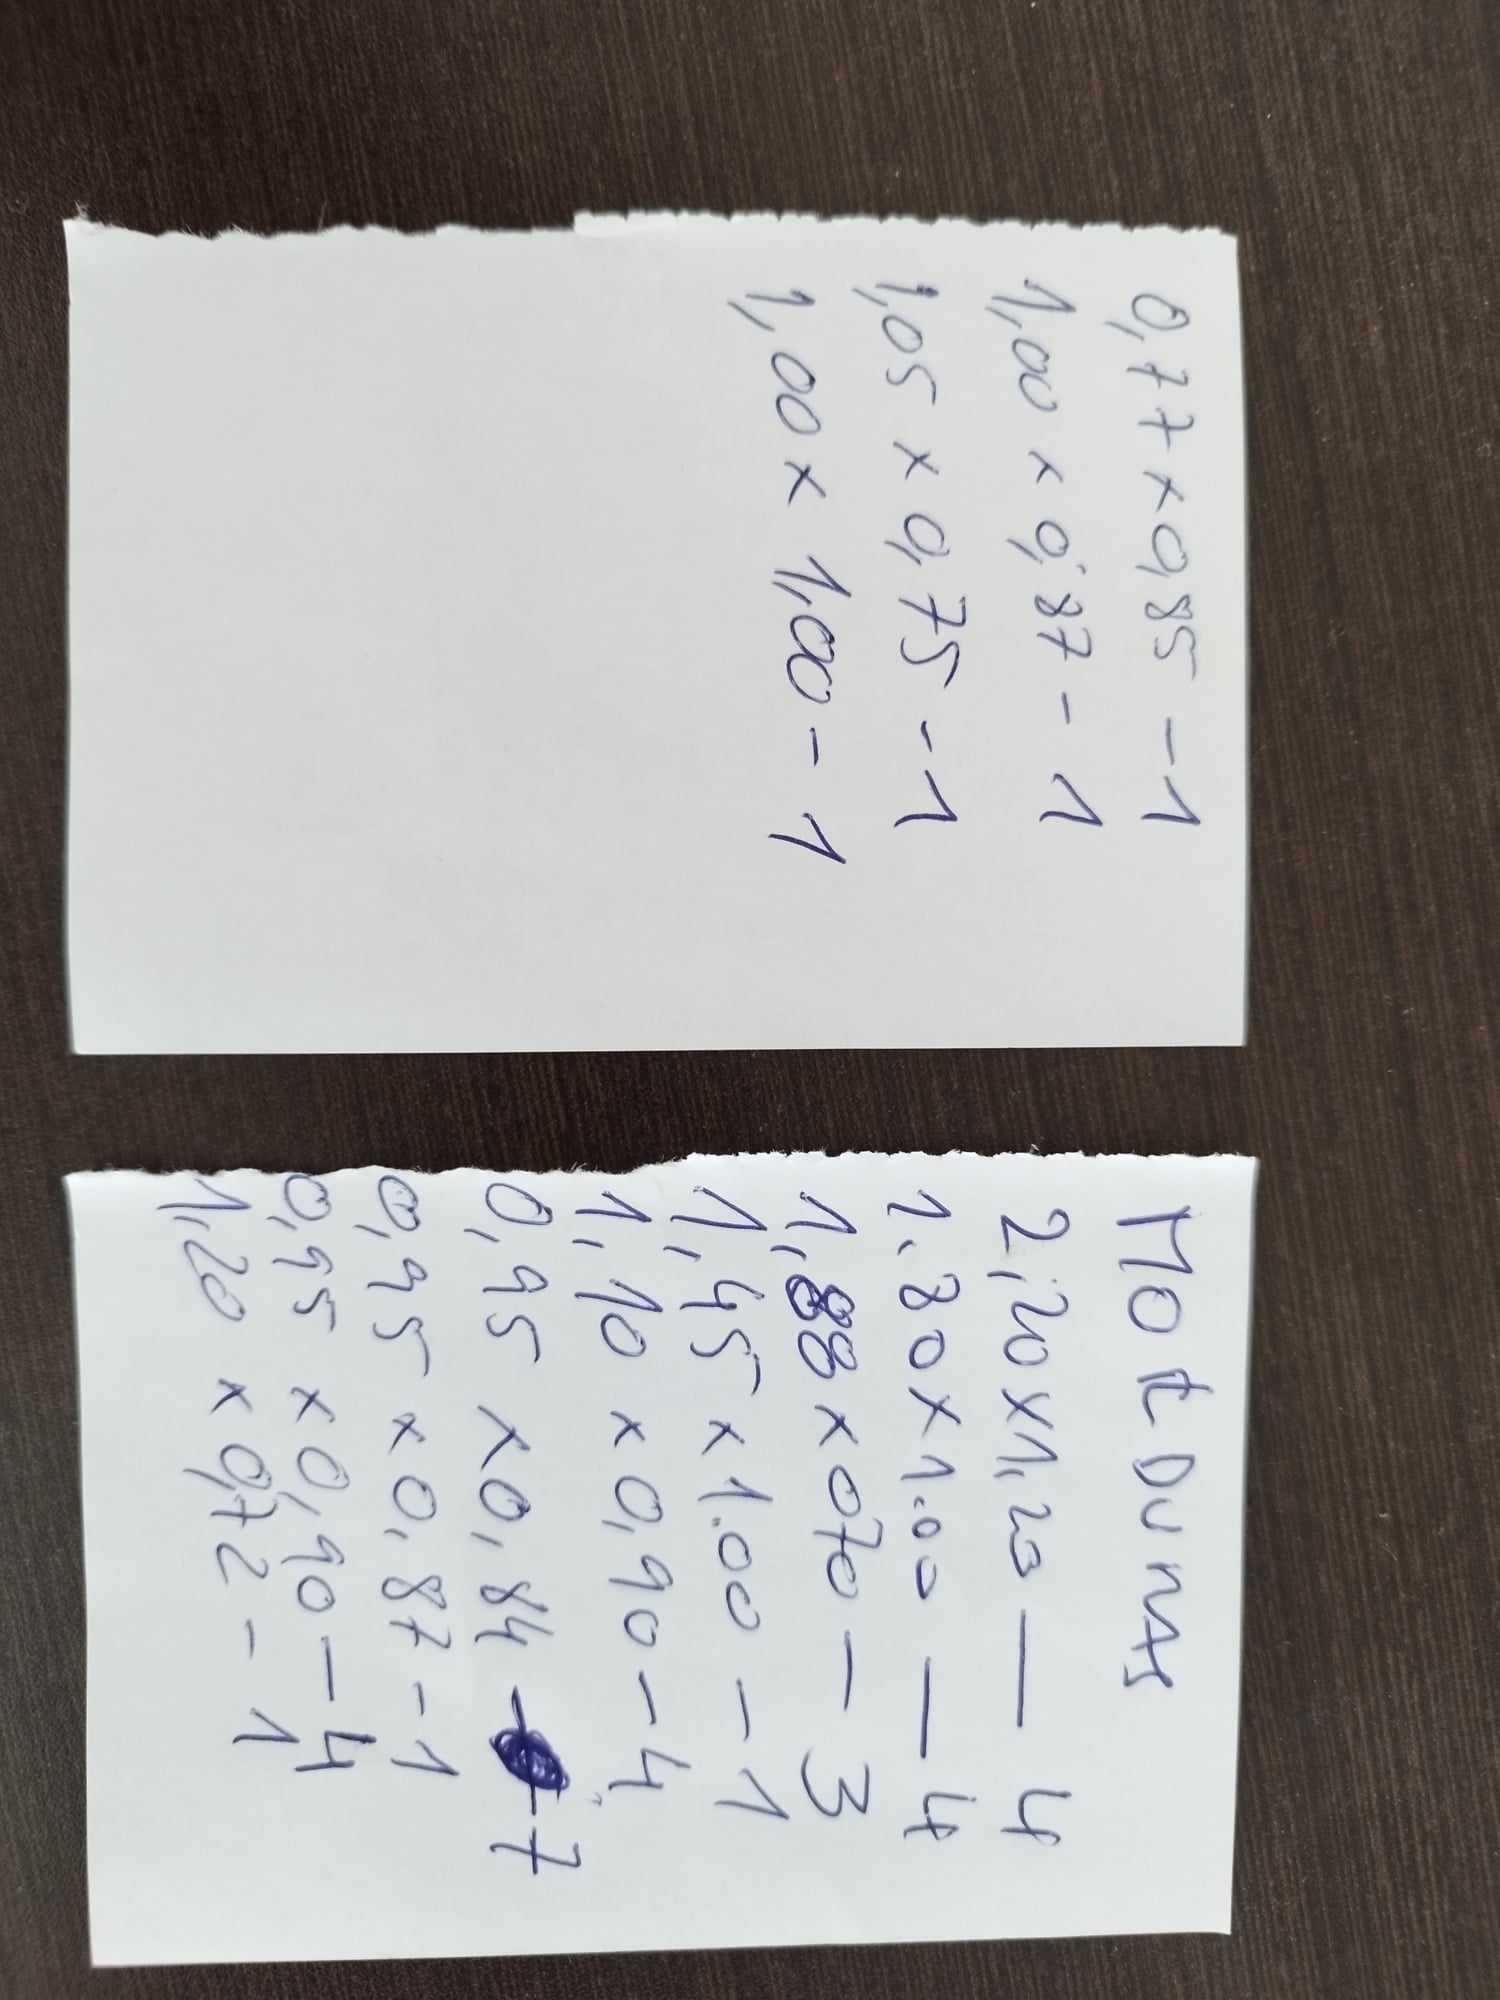 0,77 x 0,85 - 1
1,00 x 0,87 - 1
1,05 x 0,75 - 1
1,00 x 1,00 - 1
2,20 x 1,23 — 4
1.80 x 1.00 — 4
1,88 x 070 — 3
1,45 x 1.00 - 1
1,10 x 0,90 - 4
0,95 x 0,84 - 7
0,95 x 0,87 - 1
0,95 x 0,90 - 4
1,20 x 0,72 - 1